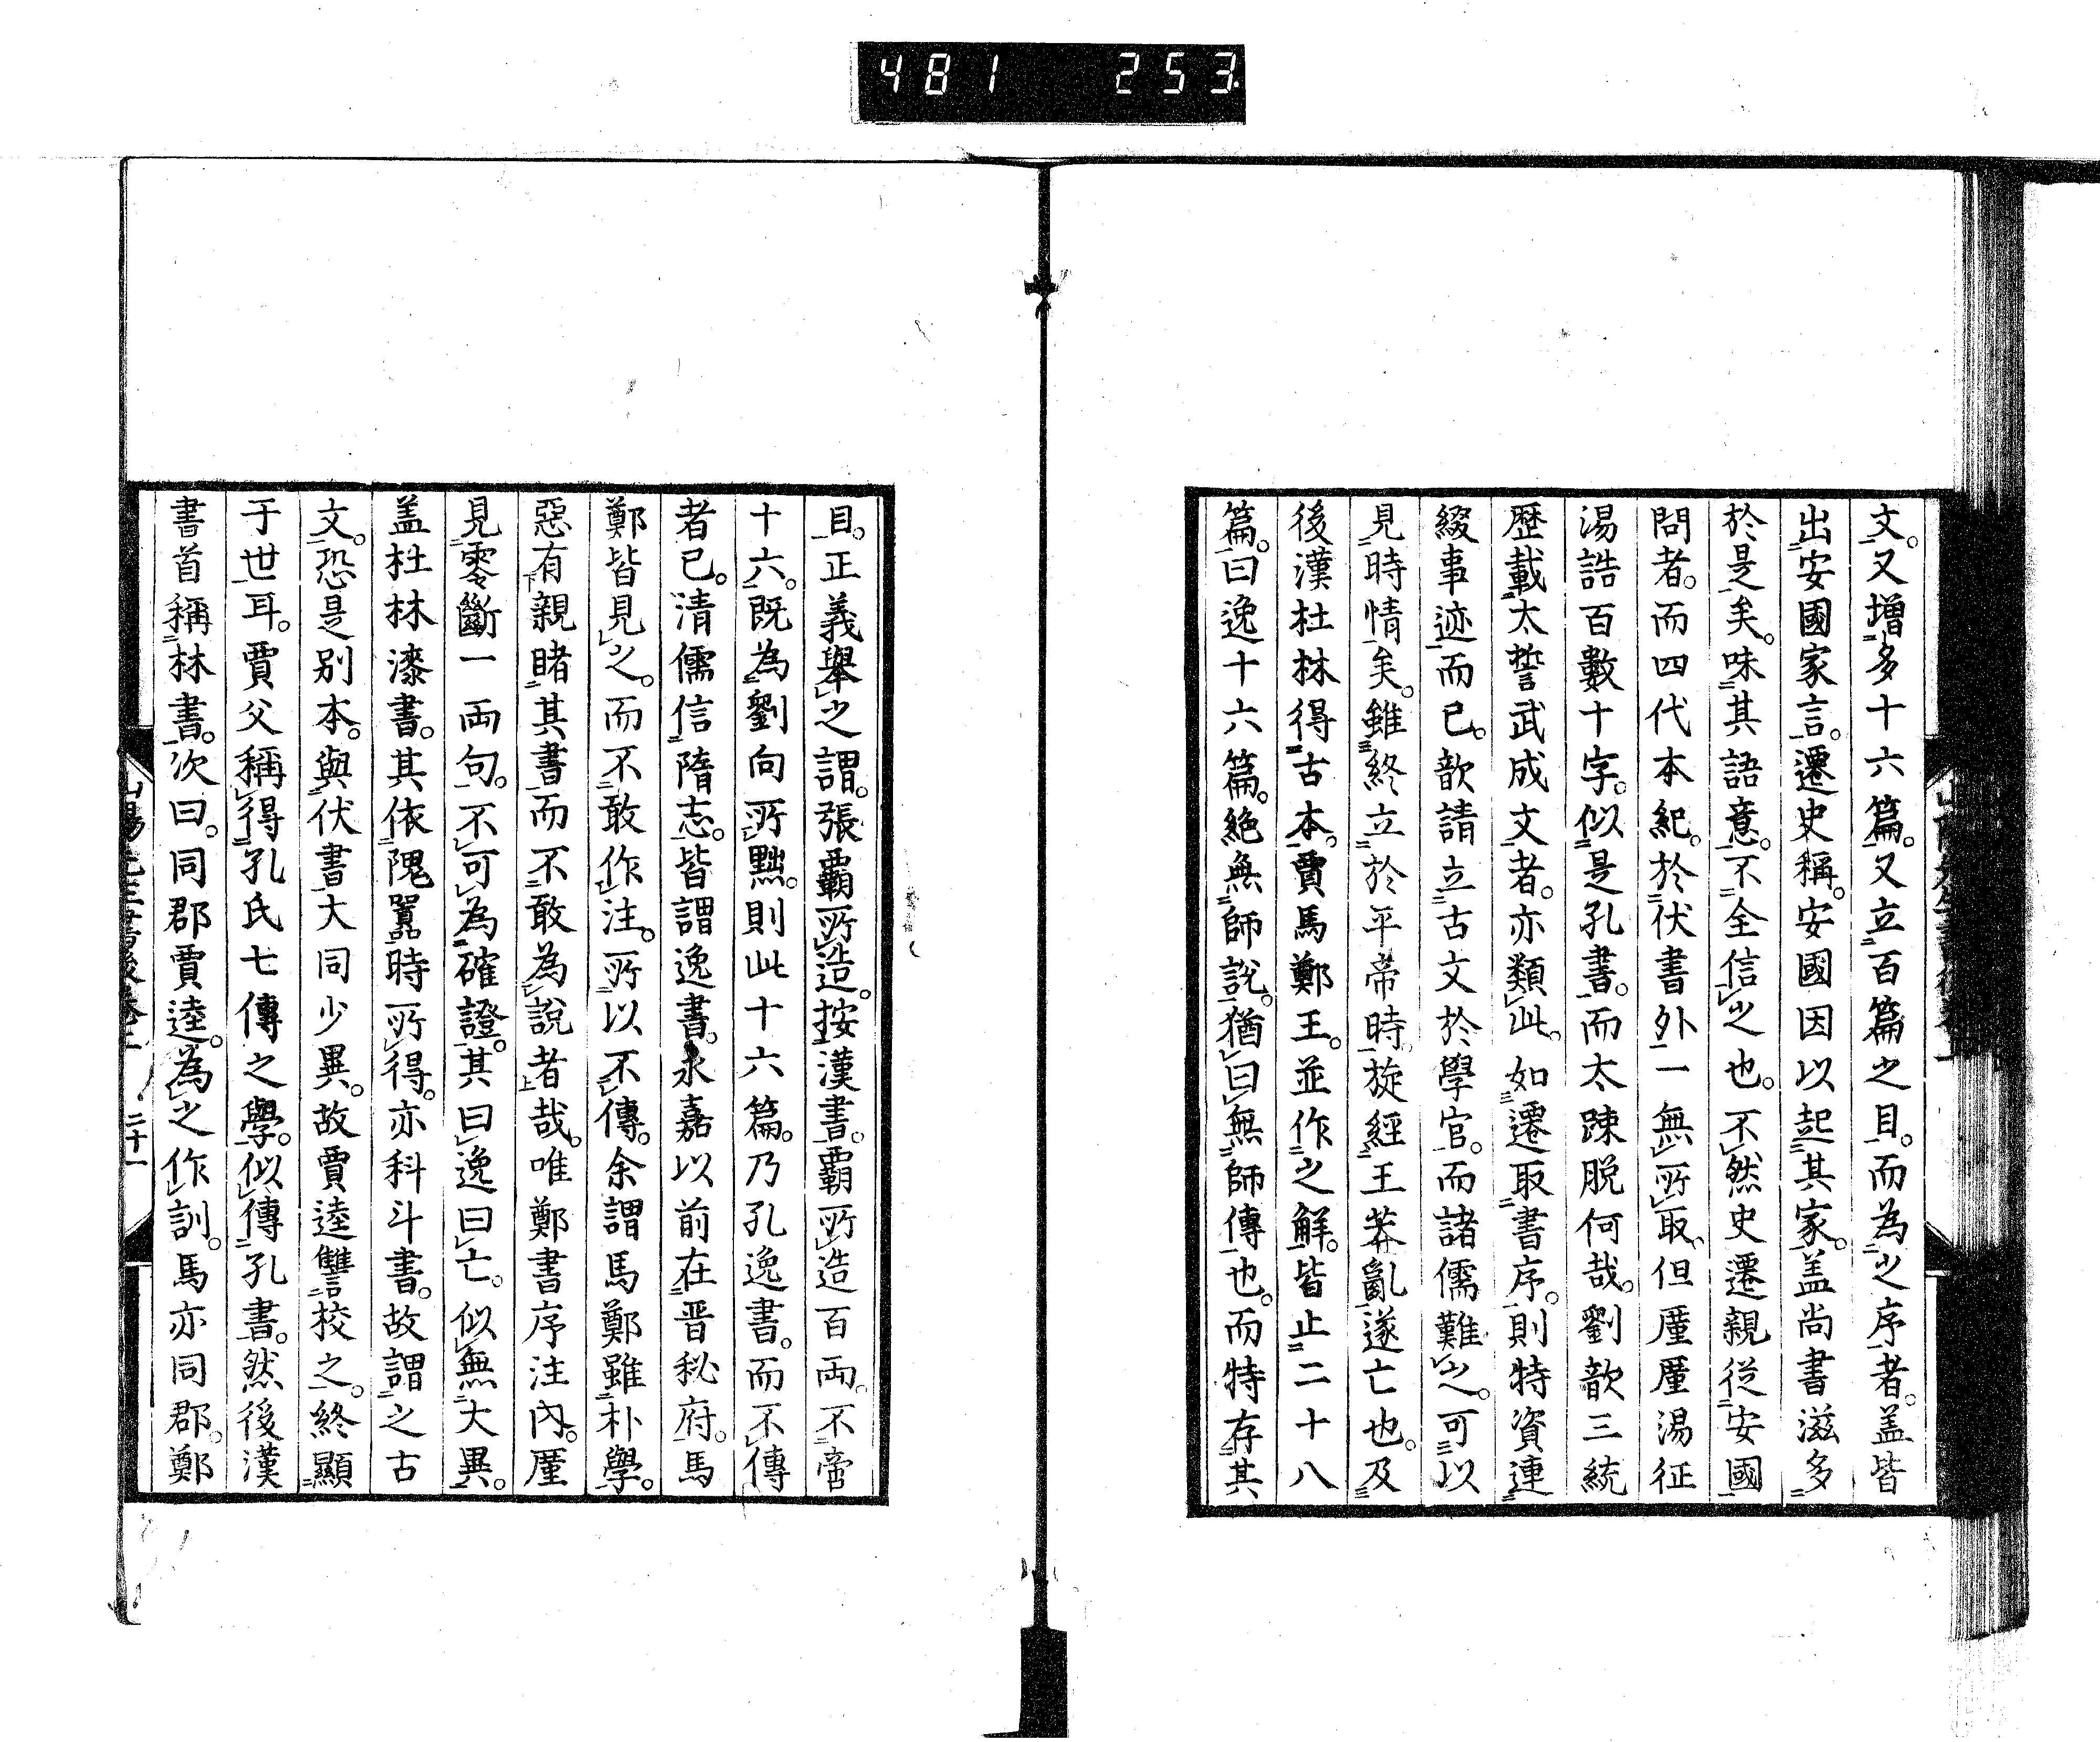 481 253
文。又增多十六篇。又立百篇之目。而為之序者。盖皆
出安國家言。遷史稱。安國因以起其家。盖尚書滋多
於是矣。味其語意。不全信之也。不然史遷親從安國
問者。而四代本紀。於伏書外一無所取、但厪厪湯征
湯誥百數十字。似是孔書。而太踈脱何哉。劉歆三統
歴載太誓武成文者。亦類此。如遷取書序。則特資連
綴事迹而已。歆請立古文於學官。而諸儒難之。可以
見時情矣。雖終立於平帝時。旋經王莽亂遂亡也。及
後漢杜林得古本。賈馬鄭王。並作之解。皆止二十八
篇。曰逸十六篇。絶無師説。猶曰無師傳也。而特存其
目。正義舉之謂。張覇所造。按漢書。覇所造百両。不啻
十六。既為劉向所黜。則此十六篇。乃孔逸書。而不傳
者已。清儒信隋志。皆謂逸書。永嘉以前在晋秘府。馬
鄭皆見之。而不敢作注。所以不傳。余謂馬鄭雖朴學。
惡有親睹其書而不敢為説者哉。唯鄭書序注內。厪
見零斷一両句。不可為確證。其曰逸曰亡。似無大異。
盖杜林漆書。其依隗囂時所得。亦科斗書。故謂之古
文。恐是别本。與伏書大同少異。故賈逵讐校之。終顯
于世耳。賈父稱得孔氏七傳之學。似傳孔書。然後漢
書首稱林書。次曰。同郡賈逵。為之作訓。馬亦同郡。鄭
二十一